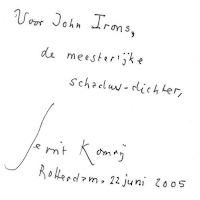 Voor John Irons,
de meesterijke
schaduw-dichter,
Gerrit Komrij
Rotterdam, 22 juni 2005